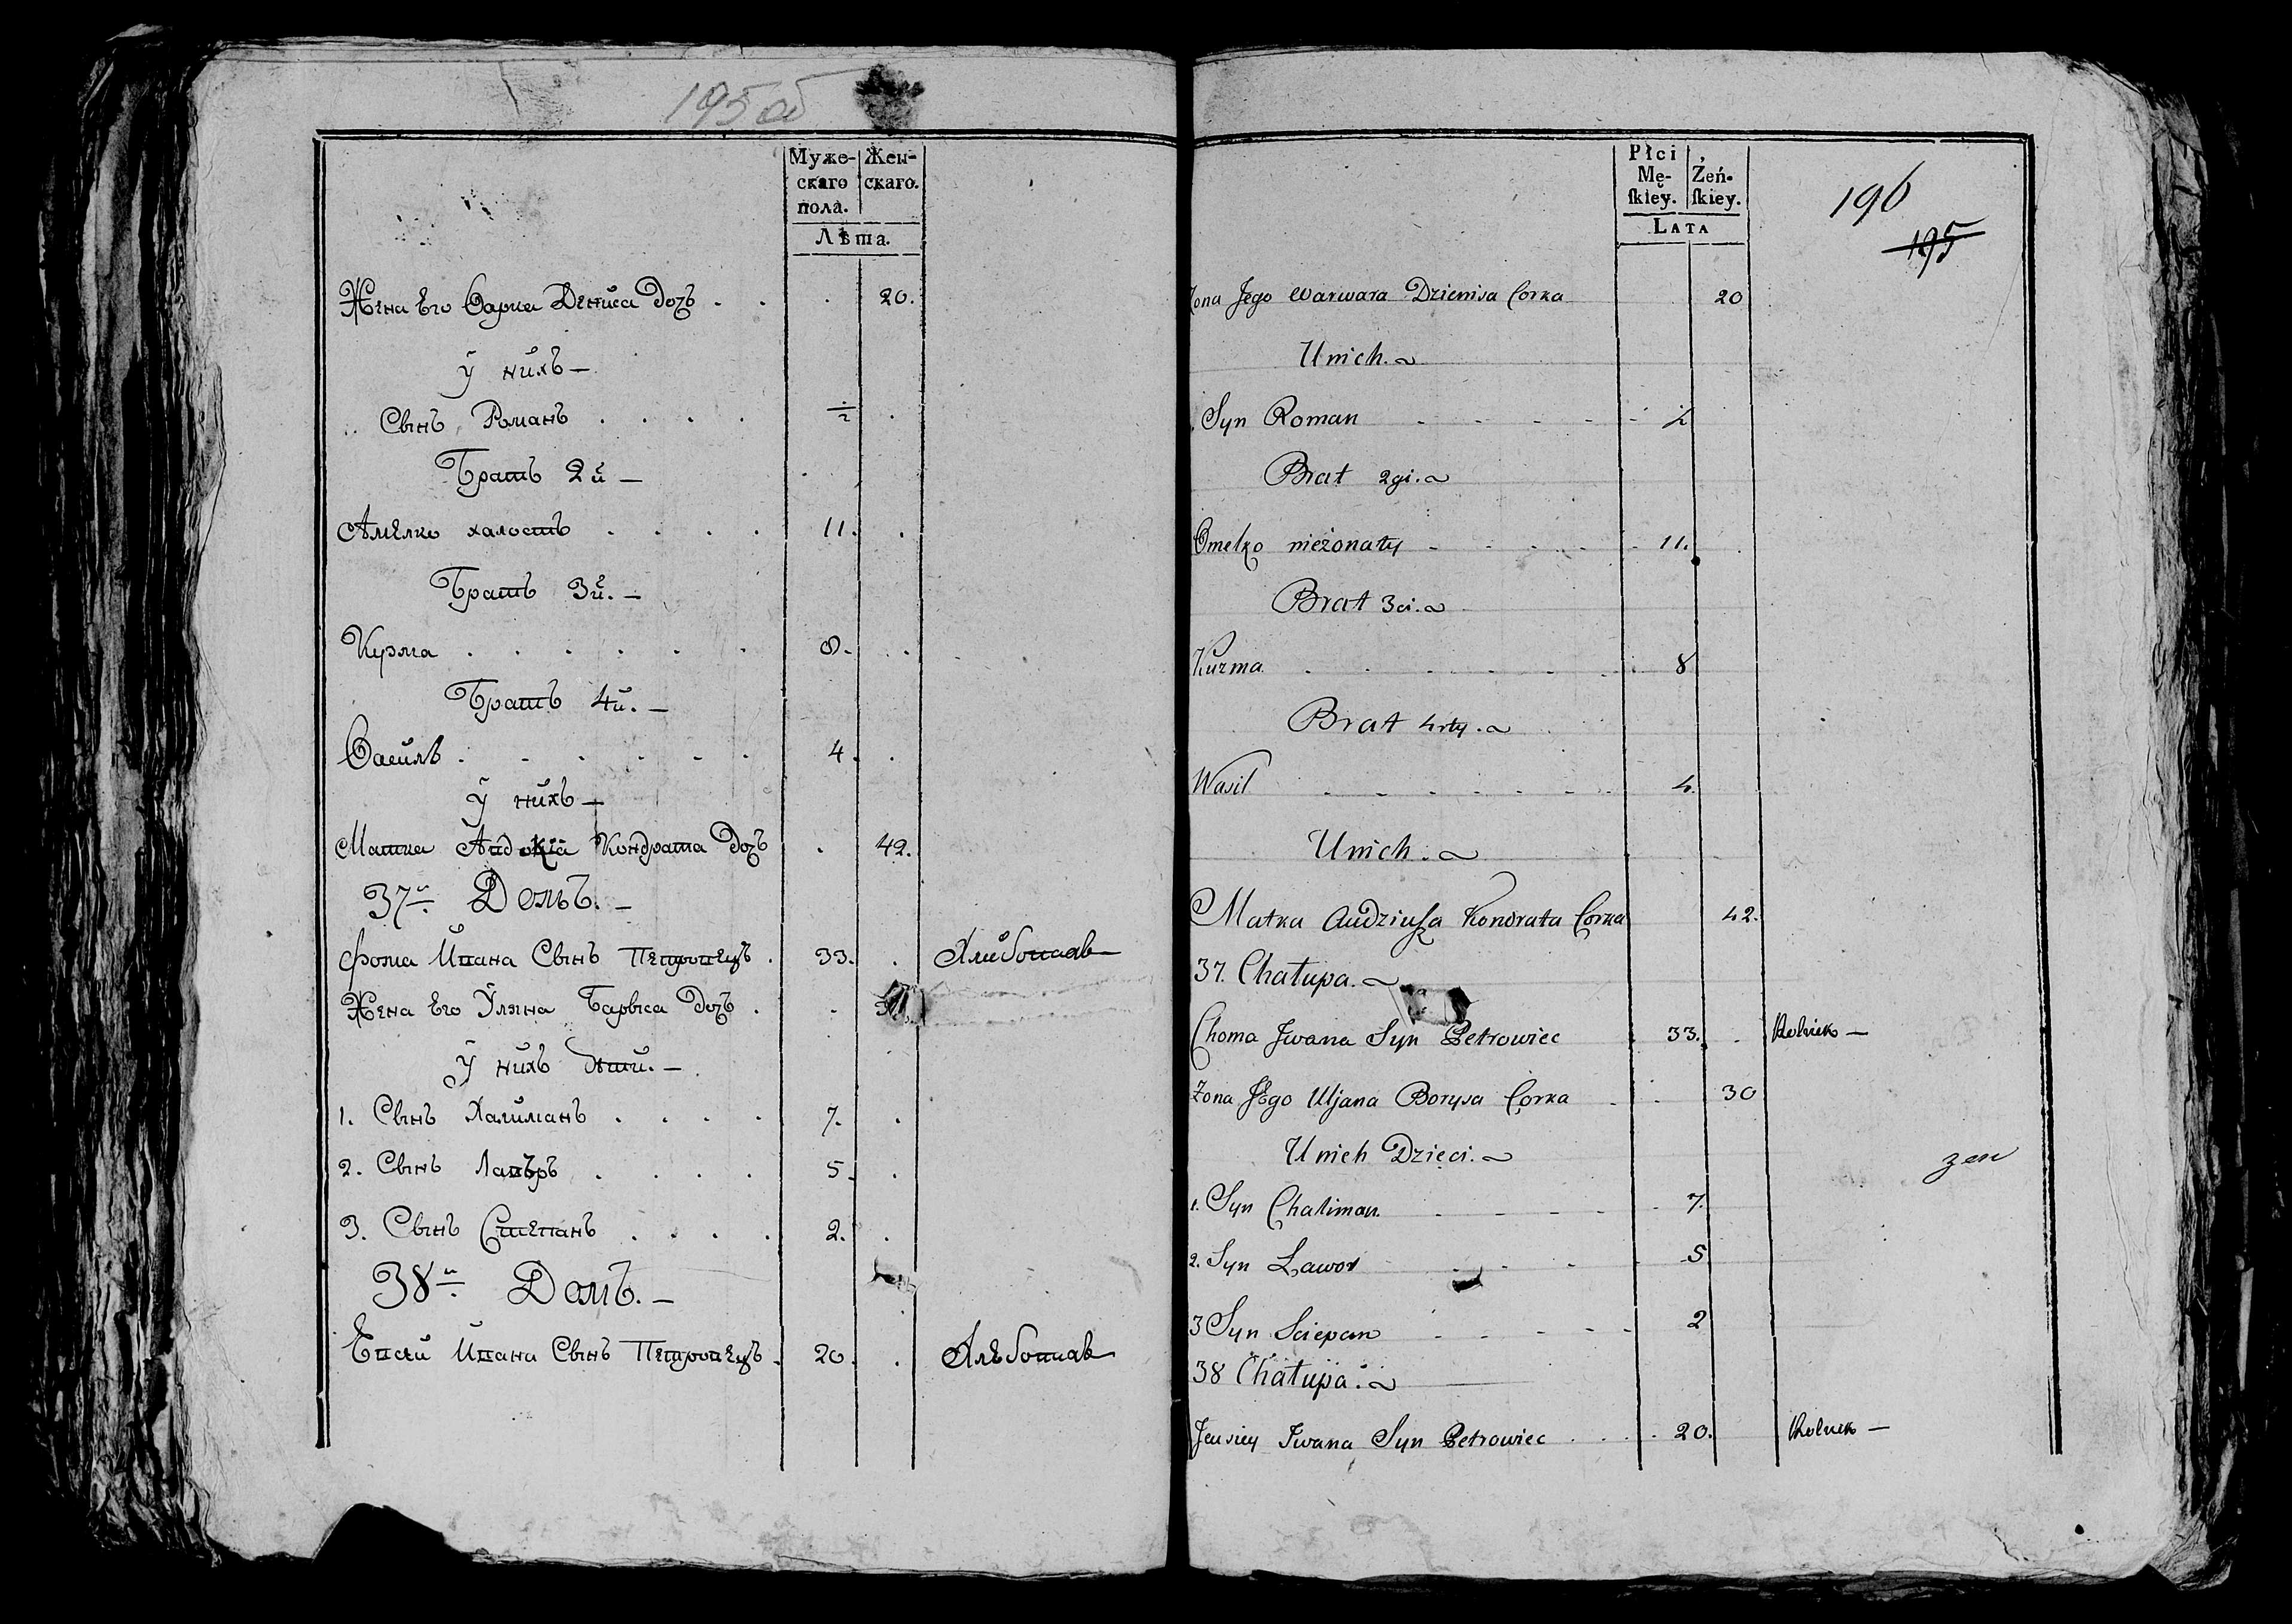 195 об
Муже-
скаго
пола.
Жен-
скаго.
Лѣта.
Жена Его Варка Дениса Дочь . . . 20.
у нихъ —
Сынъ Романъ . . . . ½ .
Братъ 2й —
Амелко халостъ . . . . 11. .
Братъ 3й. —
Кузма . . . . . . 8. .
Братъ 4й. —
Василь . . . . . . 4. .
у нихъ —
Матка Авдокїа Кондрата Дочь . 42.
37й Домъ. —
Фома Ивана Сынъ Петровецъ . 33. .
Жена Его Уляна Барыса Дочь . .
у нихъ дѣти. —
1. Сынъ Халиманъ . . . . 7. .
2. Сынъ Лавъръ . . . . 5. .
3. Сынъ Степанъ . . . . 2. .
38й Домъ. —
Евсей Ивана Сынъ Петровецъ . 20. .
Płci
Mę-
ſkiey.
Żeń-
ſkiey.
LATA
196
195
Zona Jego Warwara Dzienisa Corka 20
Unich.
Syn Roman ½
Brat 2gi.
Omelko nieżonaty 11.
Brat 3ci.
Kuzma 8
Brat 4rty.
Wasil 4.
Unich.
Matka Audziusza Kondrata Corka 42.
37. Chałupa.
Choma Jwana Syn Petrowiec 33. Rolnik —
Zona Jego Uljana Borysa Corka 30
Unich Dzieci.
1. Syn Chaliman 7.
2. Syn Ławor 5
3 Syn Sciepan 2
38 Chałupa.
Jeusiey Jwana Syn Petrowiec 20. Rolnik —